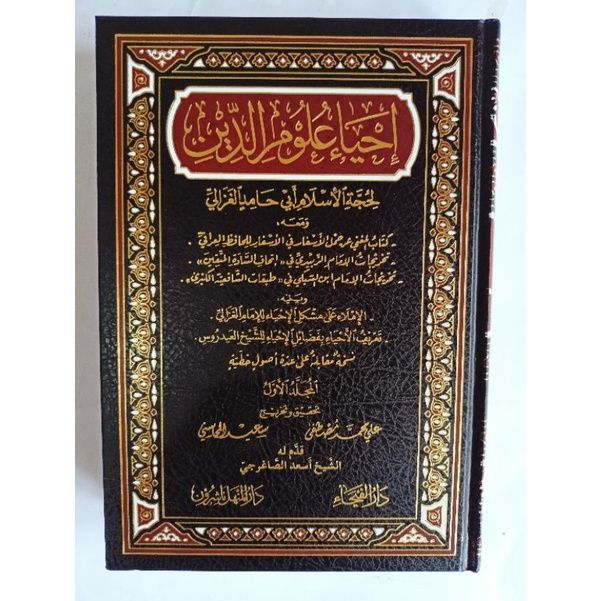 إحياء علوم الدين
لحجة الإسلام أبي حامد الغزالي
ومعه:
- كتاب المغني عن حمل الأسفار في الأسفار للحافظ العراقي.
- تخريجات الإمام الزبيدي في «إتحاف السادة المتقين».
- تخريجات الإمام ابن السبكي في «طبقات الشافعية الكبرى».
ويليه
- الإملاء على مشكل الإحياء للإمام الغزالي.
- تعريف الأحياء بفضائل الإحياء للشيخ العيدروس.
نسخة مقابلة على عدة أصول خطية
المجلد الأول
تحقيق وتخريج
علي محمد مصطفى سعيد المحاسني
قدم له
الشيخ أسعد الصاغرجي
دار الفيحاء دار المنهل ناشرون